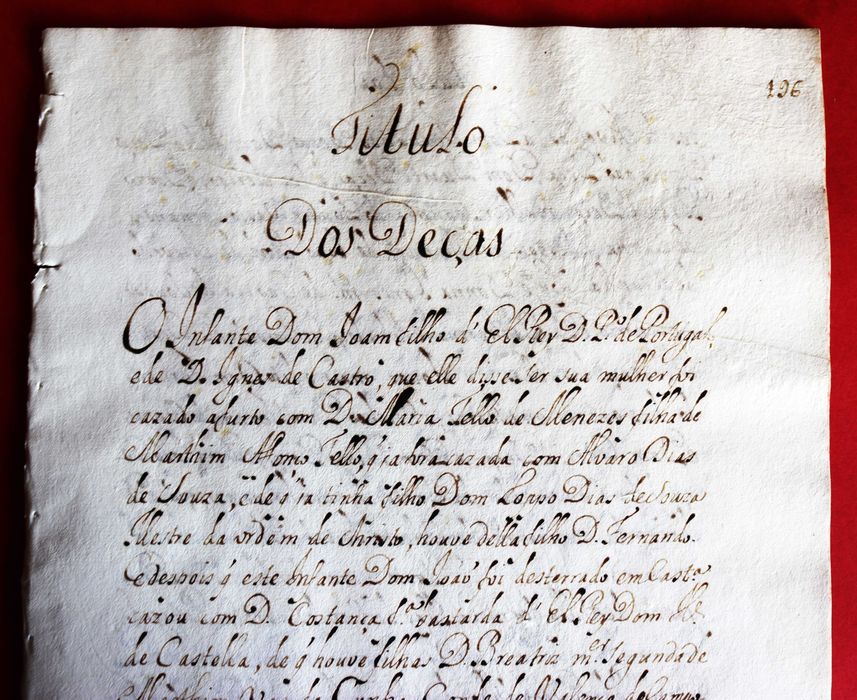 196
Titulo
Dos Deças
O Infante Dom Joam filho d' El Rey D. P.º de Portugal,
e de D. Ignes de Castro, que elle disse ser sua mulher foi
cazado a furto com D. Maria Tello de Menezes filha de
Marthim Afonço Tello, q̃ ja fora cazada com Alvaro Dias
de Souza, e de q̃ ja tinha filho Dom Lopo Dias de Souza
Mestre da ordem de Christo, houve della filho D. Fernando.
E despois q̃ este Infante Dom João foi desterrado em Cast.ª
cazou com D. Costança f.ª bastarda d' El Rey Dom
de Castella, de q̃ houve filhas D. Breatriz m.er segunda de
Marthim Vas da Cunha Conde de Valença de